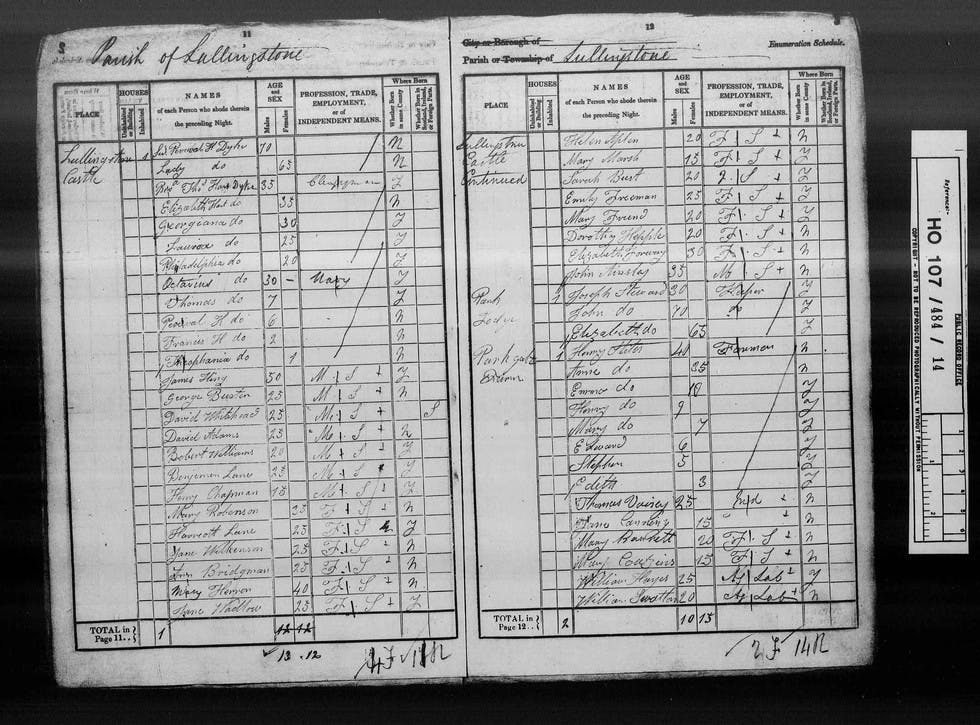 11
Parish of Lullingstone
PLACE
HOUSES
Uninhabited or Building
Inhabited
NAMES of each Person who abode therein the preceding Night.
AGE and SEX
Males
Females
PROFESSION, TRADE, EMPLOYMENT, or of INDEPENDENT MEANS.
Where Born
Whether Born in same County
Whether Born in Scotland, Ireland, or Foreign Parts.
Lullingstone 1 Percival H Dyke 70 N
Castle Lady do 65 N
Thos Hart Dyke 35 Clergyman Y
Elizabeth Hart do 35 N
Georgeana do 30 Y
do 25 Y
Philadelphia do 20 Y
Octavius do 30 – Navy Y
Thomas do 7 Y
Percival H do 6 N
Francis H do 2 N
Theophania do 1 N
James King 50 M S + Y
George Buston 25 M S + N
David Whitehead 25 M S + S
David Adams 25 M S + N
Robert Williams 20 M S + Y
Benjemen Lane 25 M S Y
Henry Chapman 15 M S + Y
Mary Robenson 35 F S + N
Harreott Lane 25 F S Y
Jane Wilkenson 25 F S + N
Ann Bridgman 25 F S + N
Mary Herron 40 F S + N
Jane Wadlow 25 F S + Y
TOTAL in Page 11 1 12 12
13 . 12
12
City or Borough of
Parish or Township of Lullingstone
Enumeration Schedule.
PLACE
HOUSES
Uninhabited or Building
Inhabited
NAMES of each Person who abode therein the preceding Night.
AGE and SEX
Males
Females
PROFESSION, TRADE, EMPLOYMENT, or of INDEPENDENT MEANS.
Where Born
Whether Born in same County
Whether Born in Scotland, Ireland, or Foreign Parts.
Helen 20 F S + N
Castle Mary Marsh 15 F S + Y
Continued Sarah Bust 20 F S + Y
Emily Freeman 25 F S + Y
Mary Friend 20 F S + Y
Dorothy Hepple 20 F S + N
Elizabeth 30 F S + N
John 35 M S + N
Park 1 Joseph Steward 30 Keeper Y
Lodge John do 70 Y
Elizabeth do 65 Y
Park gate 1 Henry 40 Farmer N
Anne do 35 N
Emma do 10 Y
Henry do 9 Y
Mary do 7 Y
Edward 6 Y
Stephen 5 Y
Edeth 3 Y
Thomas 25 + N
Jane 15 N
Mary 20 F S + N
Mary 15 F S + N
William Hayes 25 Ag Lab + Y
William 20 Ag Lab + N
TOTAL in Page 12 2 10 15
2 F 14 N
Reference:-
HO 107 / 484 / 14
PUBLIC RECORD OFFICE
COPYRIGHT - NOT TO BE REPRODUCED PHOTOGRAPHICALLY WITHOUT PERMISSION